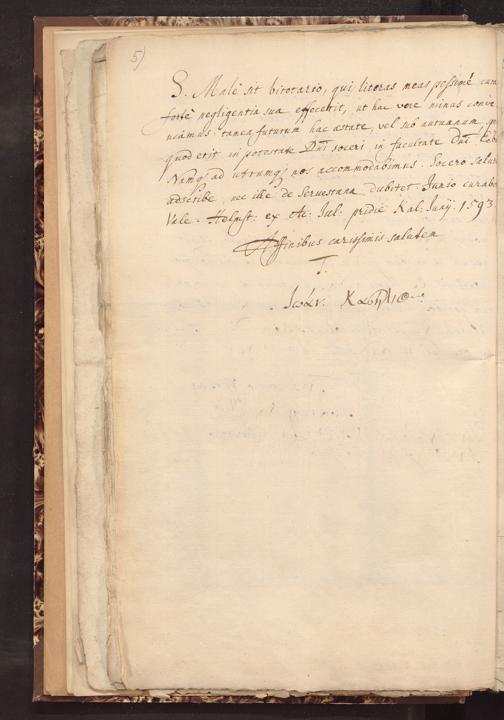 5)
S. Malè sit birotario, qui literas meas pessimè cum
fortè negligentia sua effecerit, ut hac vere minus conve
niamus, tamen futurum hac æstate, vel sub autumnum
quod erit in potestate Dni soceri, in facultate Dni
Namq; ad utrumq; nos accommodabimus. Socero salut
adscribe, nec ille de Servestana dubitet. Junio curabo
Vale. Helmst: ex Ac: Jul: pridie Kal: Junij 1593
Affinibus carissimis salutem
T.